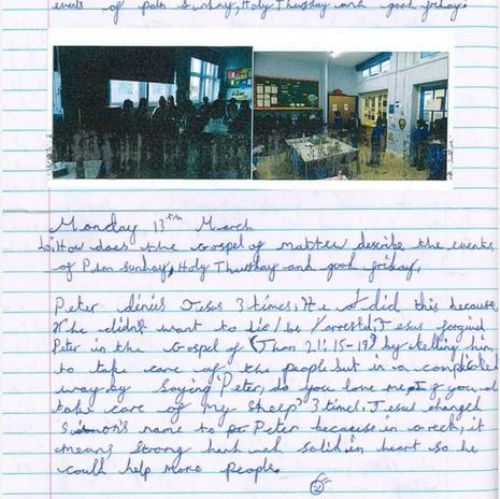 events of palm Sunday, Holy Thursday and good friday.
Monday 13th March
Lo: How does the Gospel of matter describe the events
of Plan Sunday, Holy Thursday and good friday.
Peter denies Jesus 3 times. He did this because
he didn't want to die/be arrested. Jesus forgive
Peter in the Gospel of (Jhon 21:15-19) by telling him
to take care of the people but in a complicated
way by saying 'Peter, do you love me, if you do
take care of my sheep' 3 times. Jesus changed
Simon's name to Peter because in Greek, it
means strong hard and solid in heart so he
could help more people.